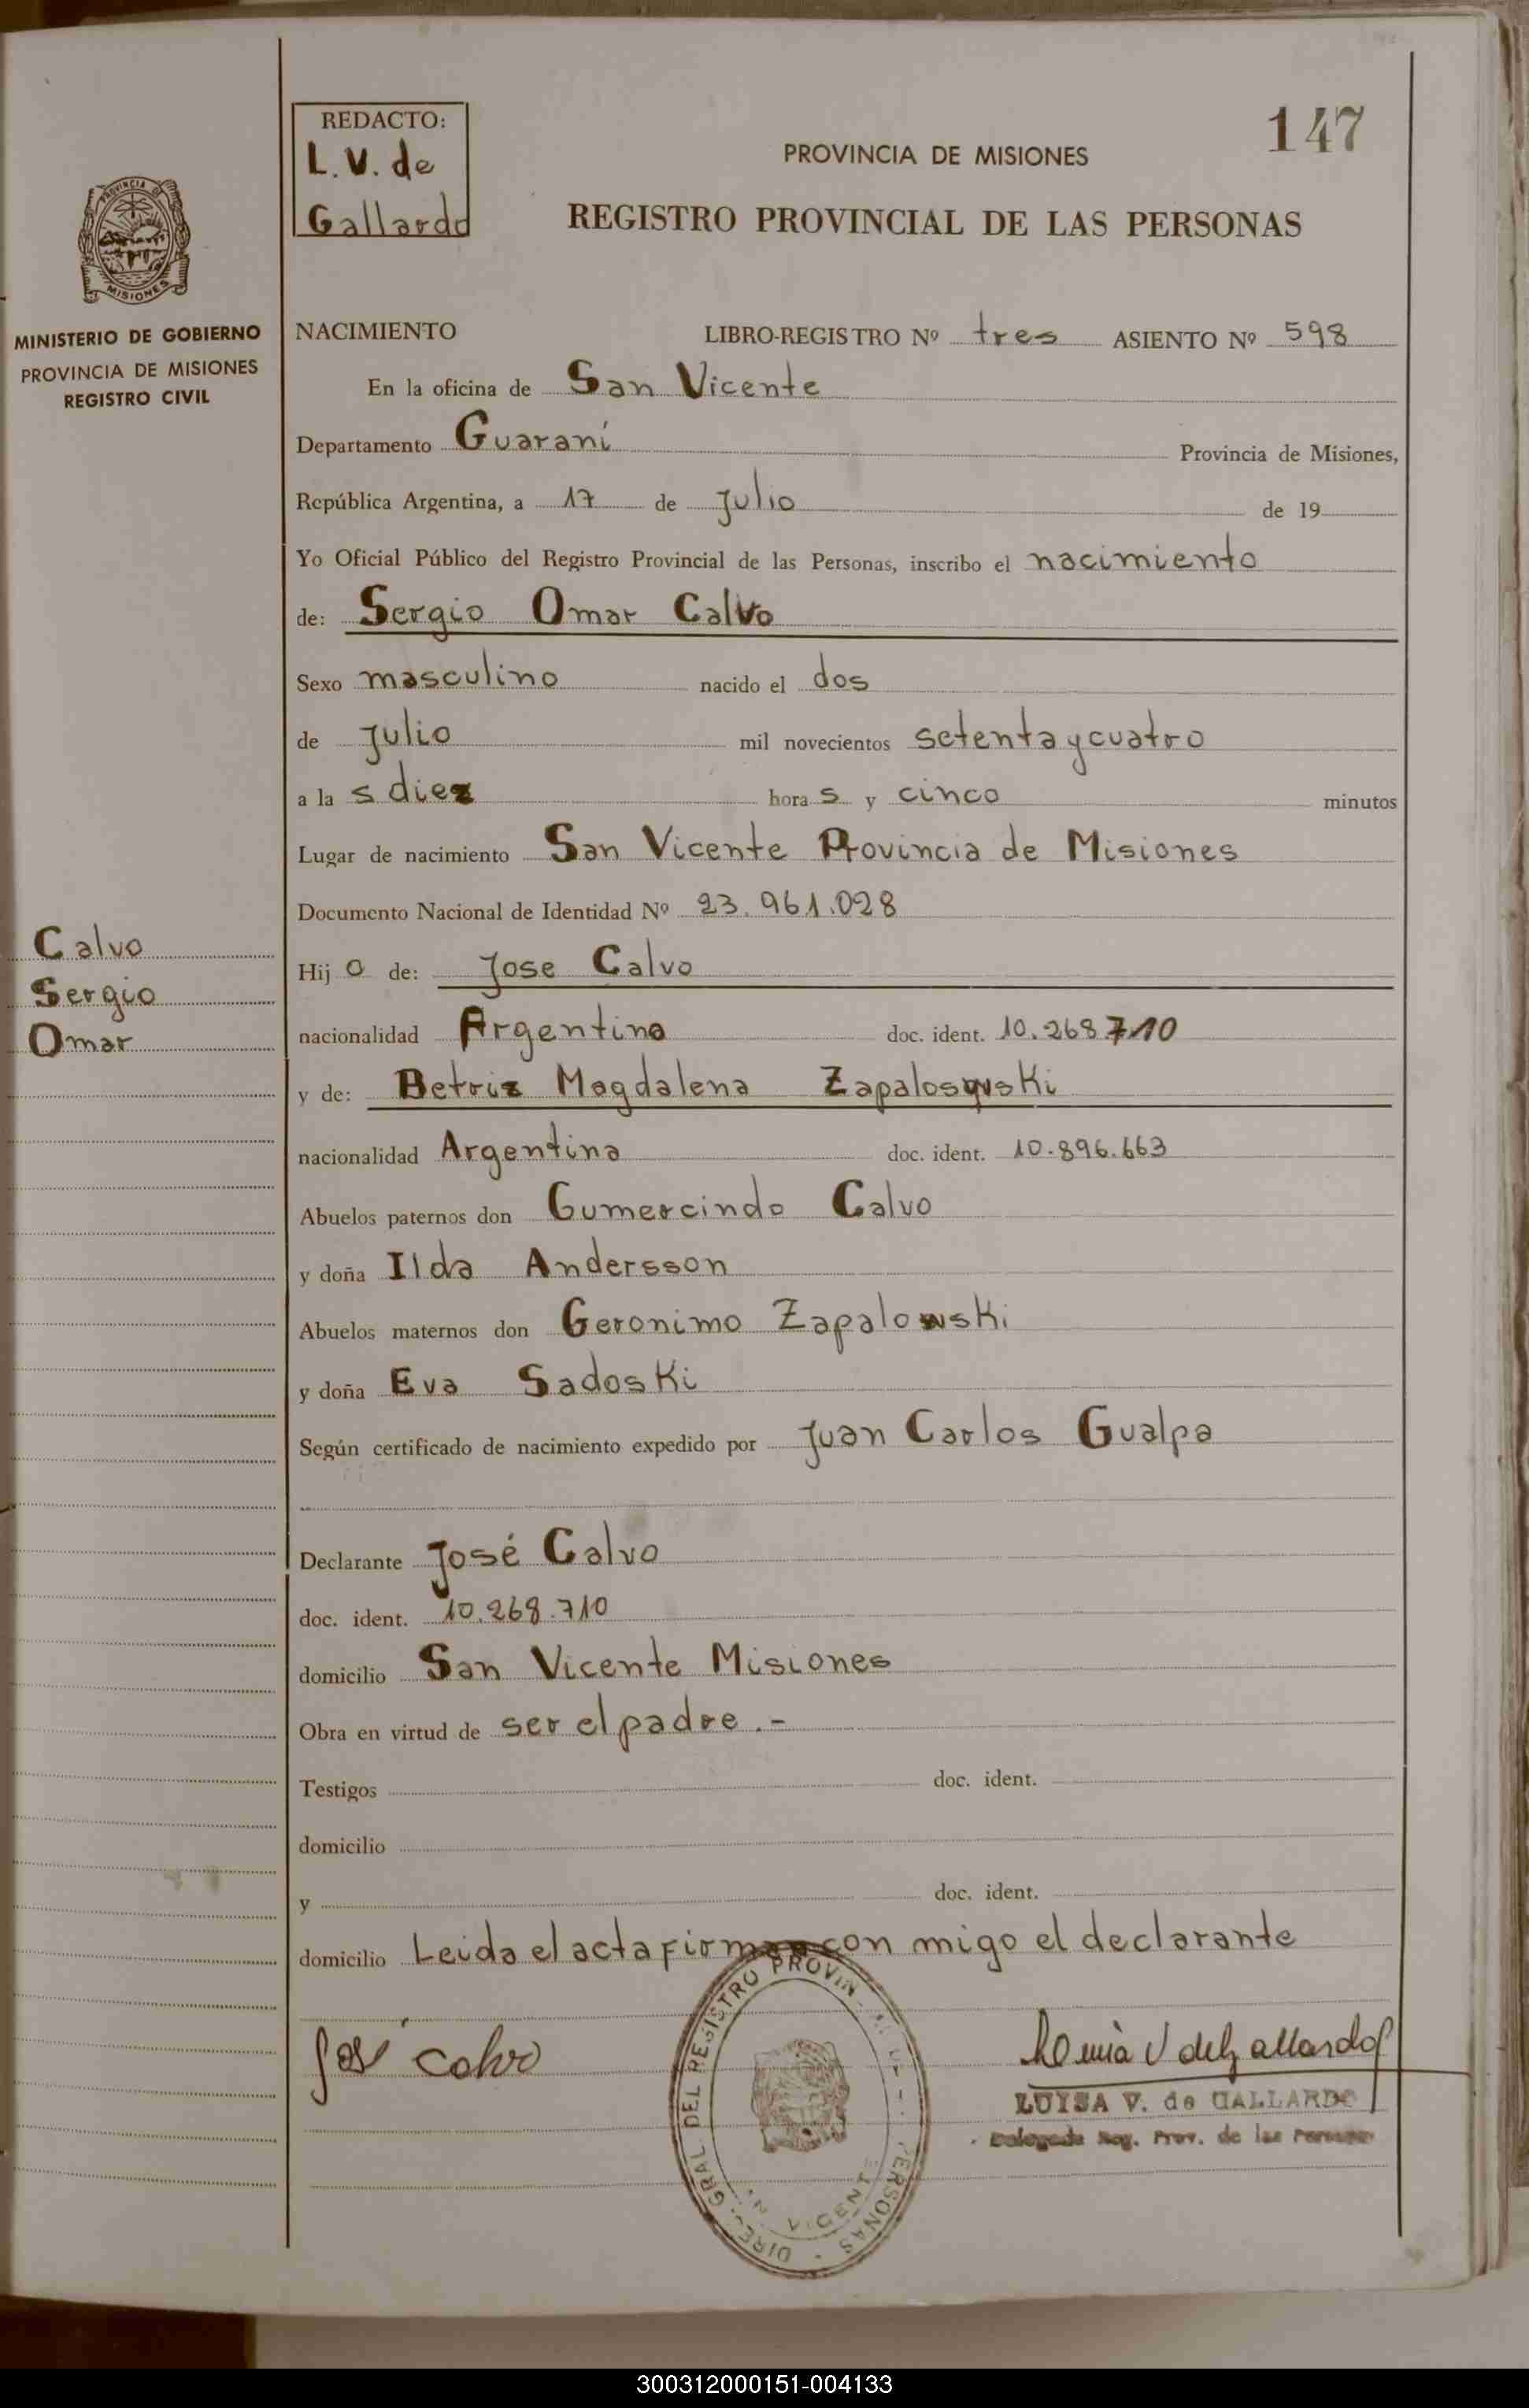 REDACTO:
L.V. de
Gallardo
147
PROVINCIA DE MISIONES
REGISTRO PROVINCIAL DE LAS PERSONAS
PROVINCIA DE
MISIONES
MINISTERIO DE GOBIERNO
PROVINCIA DE MISIONES
REGISTRO CIVIL
NACIMIENTO LIBRO-REGISTRO Nº tres ASIENTO Nº 598
En la oficina de San Vicente
Departamento Guaraní Provincia de Misiones,
República Argentina, a 17 de Julio de 19
Yo Oficial Público del Registro Provincial de las Personas, inscribo el nacimiento
de: Sergio Omar Calvo
Sexo masculino nacido el dos
de Julio mil novecientos setenta y cuatro
a la s diez hora s y cinco minutos
Lugar de nacimiento San Vicente Provincia de Misiones
Documento Nacional de Identidad Nº 23.961.028
Calvo
Sergio
Omar
Hij o de: Jose Calvo
nacionalidad Argentina doc. ident. 10.268.710
y de: Betriz Magdalena
nacionalidad Argentina doc. ident. 10.896.663
Abuelos paternos don Gumercindo Calvo
y doña Ilda Andersson
Abuelos maternos don Geronimo Zapalowski
y doña Eva Sadoski
Según certificado de nacimiento expedido por Juan Carlos Gualpa
Declarante José Calvo
doc. ident. 10.268.710
domicilio San Vicente Misiones
Obra en virtud de ser el padre.-
Testigos doc. ident.
domicilio
y doc. ident.
domicilio Leida el acta firma con migo el declarante
José Calvo
LUISA V. de GALLARDO
Delegada Reg. Prov. de las Personas
DIREC. GRAL DEL REGISTRO PROVIN PERSONAS
300312000151-004133